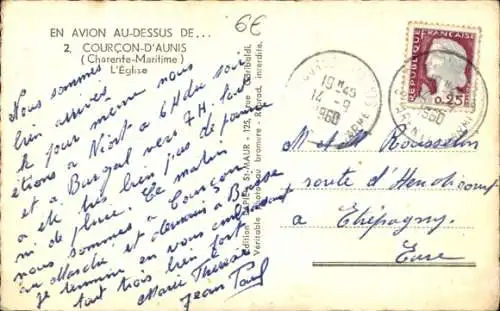 EN AVION AU-DESSUS DE...
2. COURÇON-D'AUNIS
(Charente-Maritime)
L'Église
6€
Nous sommes
bien arrivés
le jour même nous
étions à Niort à 6H du soir
et à Burgal vers 7H.
a été très bien pas de
ni de pluie. Ce matin
nous sommes à Courçon
au Marché et demain à
je termine en vous embrassant
tout trois bien fort
Marie Thérèse
Jean Paul
PIERRE ST-MAUR - 125, rue Garibaldi.
Véritable photo au bromure - Reprod. interdite.
19H45
14 - 9
1960
REPUBLIQUE FRANÇAISE
0,25
1960
M et M Rousselin
route d'Hendicourt
à Etrépagny
Eure